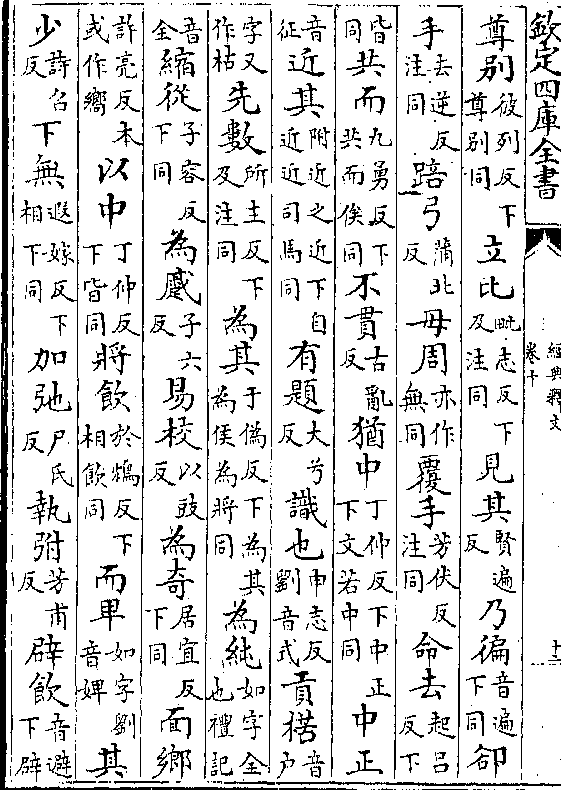 欽定四庫全書
經典釋文
卷十
尊别彼列反下尊别同立比毗志反下及注同見其賢遍反乃徧音遍下同卻
手去逆反注同踣弓蒲北反毋周亦作無同覆手芳伏反注同命去起吕反下
皆同共而九勇反下共而俟同不貫古亂反猶中丁仲反下中正下文若中同中正
音征近其附近之近下自近近司馬同有題大兮反識也申志反劉音式貢楛音户
字又作枯先數所主反下及注同為其于偽反下為其為侯為將同為純如字全也禮記
音全縮從子容反下同為蹙子六反易校以豉反為奇居宜反下同面鄉
許亮反本或作嚮以中丁仲反下皆同將飲於鴆反下相飲同而卑如字劉音婢其
少詩召反下無遐嫁反下相下同加弛尸氏反執弣芳甫反辟飲音避下辟